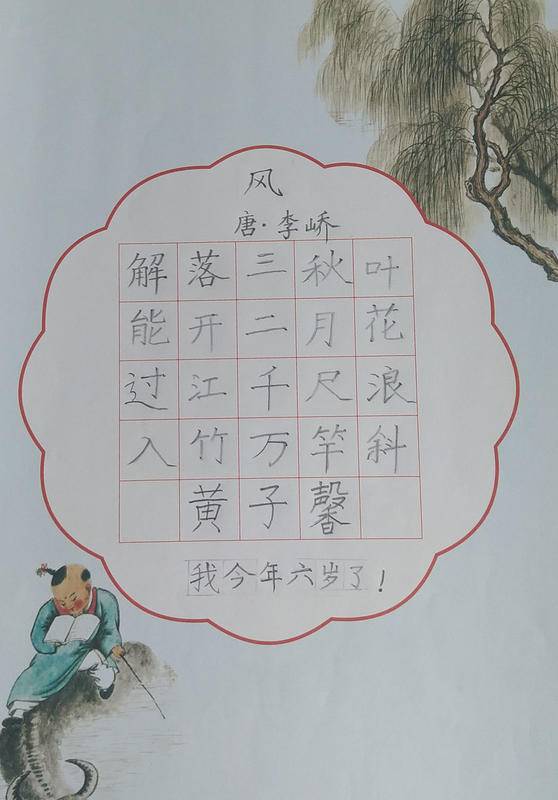 风
唐·李峤
解落三秋叶
能开二月花
过江千尺浪
入竹万竿斜
黄子馨
我今年六岁了!